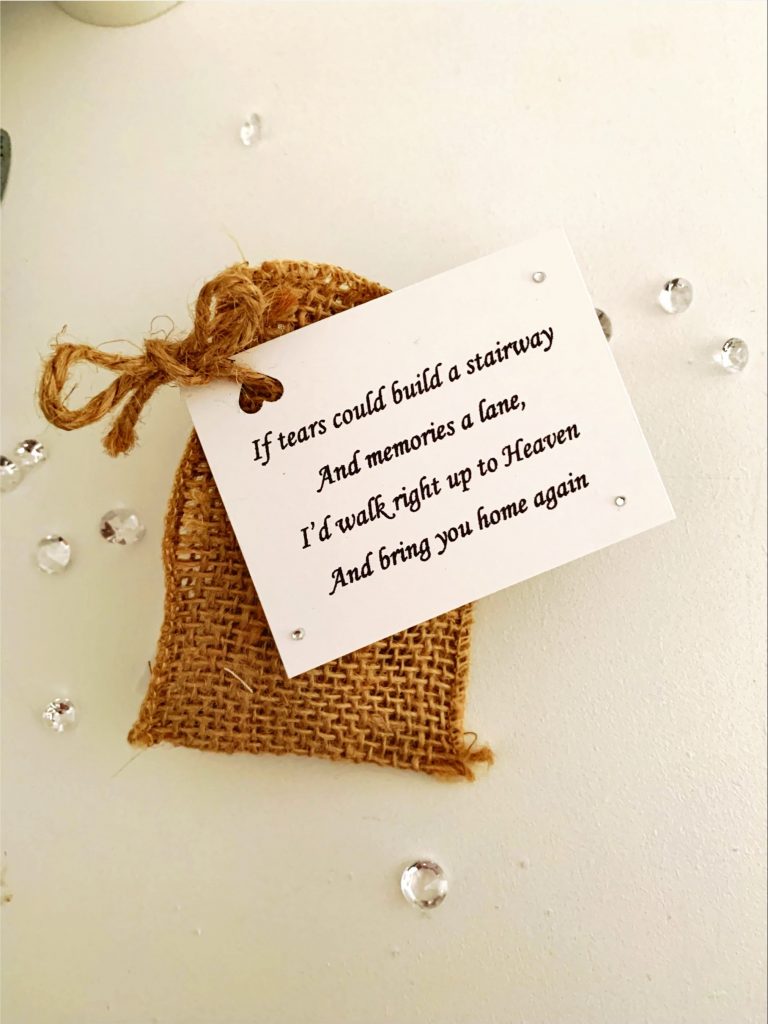 If tears could build a stairway
And memories a lane,
I'd walk right up to Heaven
And bring you home again